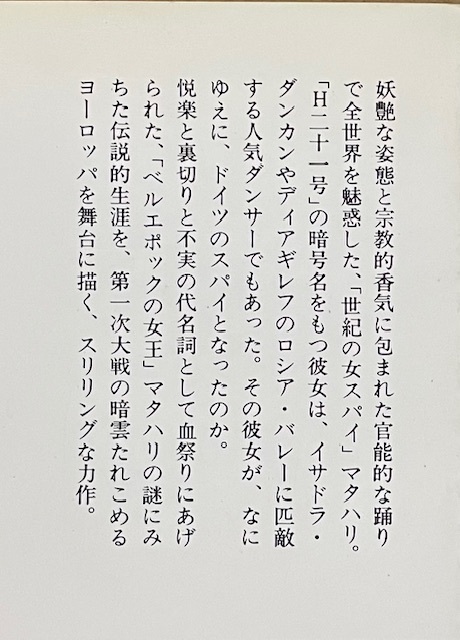 妖艶な姿態と宗教的香気に包まれた官能的な踊り
で全世界を魅惑した、「世紀の女スパイ」マタハリ。
「H二十一号」の暗号名をもつ彼女は、イサドラ・
ダンカンやディアギレフのロシア・バレーに匹敵
する人気ダンサーでもあった。その彼女が、なに
ゆえに、ドイツのスパイとなったのか。
悦楽と裏切りと不実の代名詞として血祭りにあげ
られた、「ベルエポックの女王」マタハリの謎にみ
ちた伝説的生涯を、第一次大戦の暗雲たれこめる
ヨーロッパを舞台に描く、スリリングな力作。